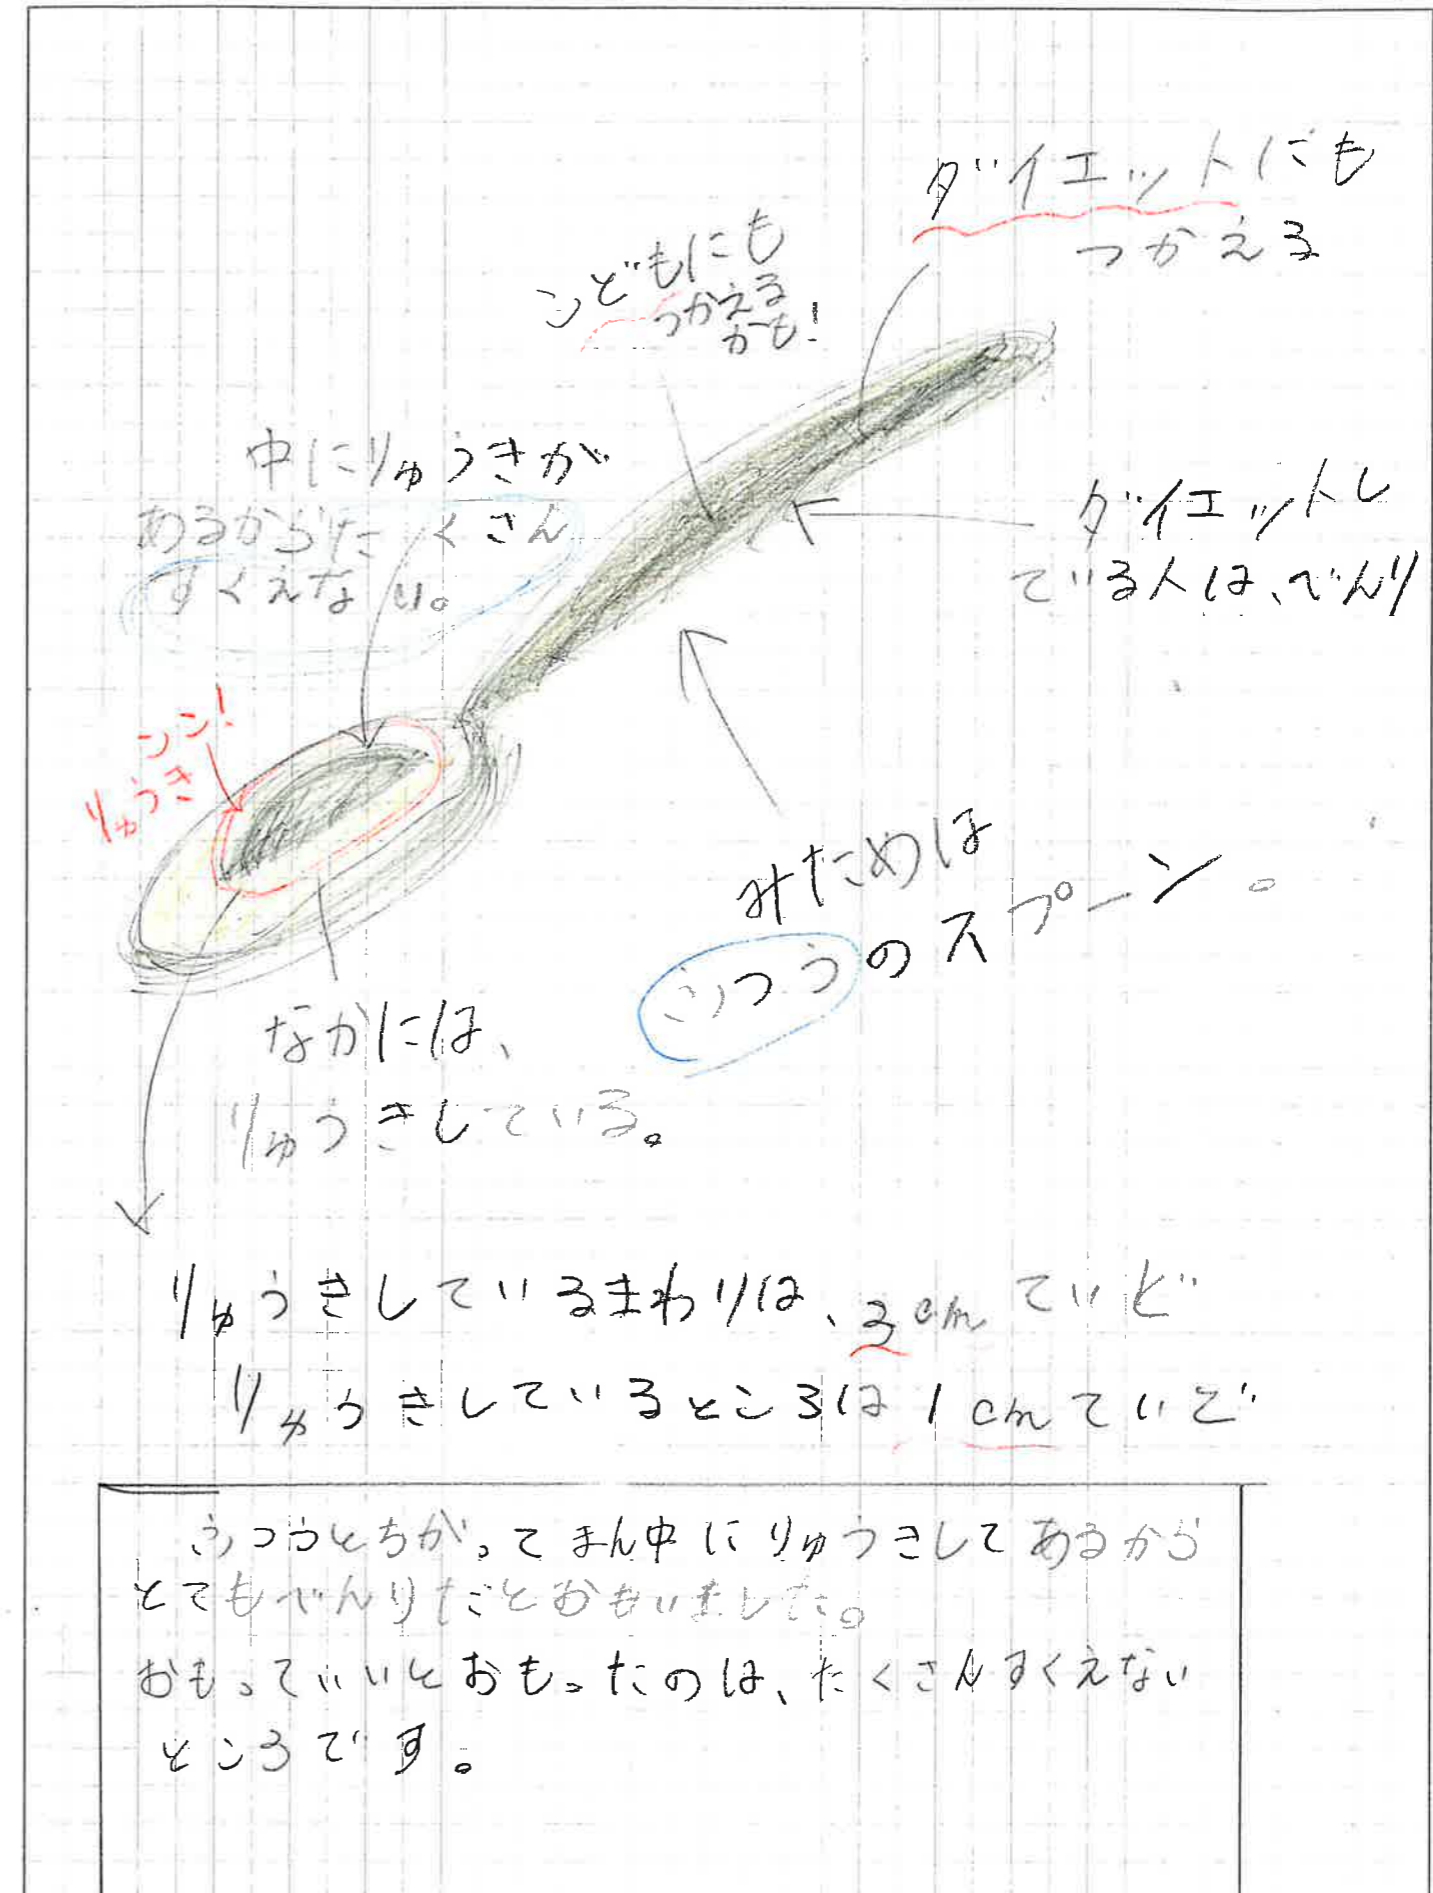 ダイエットにも
つかえる
こどもにも
つかえる
かも!
中にりゅうきが
あるからたくさん
すくえない。
ダイエットし
ている人は、べんり
ここ!
りゅうき
みためは
ふつうのスプーン。
なかには、
りゅうきしている。
りゅうきしているまわりは、3cmていど
りゅうきしているところは1cmていど
ふつうとちがってまん中にりゅうきしてあるから
とてもべんりだとおもいました。
おもっていいとおもったのは、たくさんすくえない
ところです。